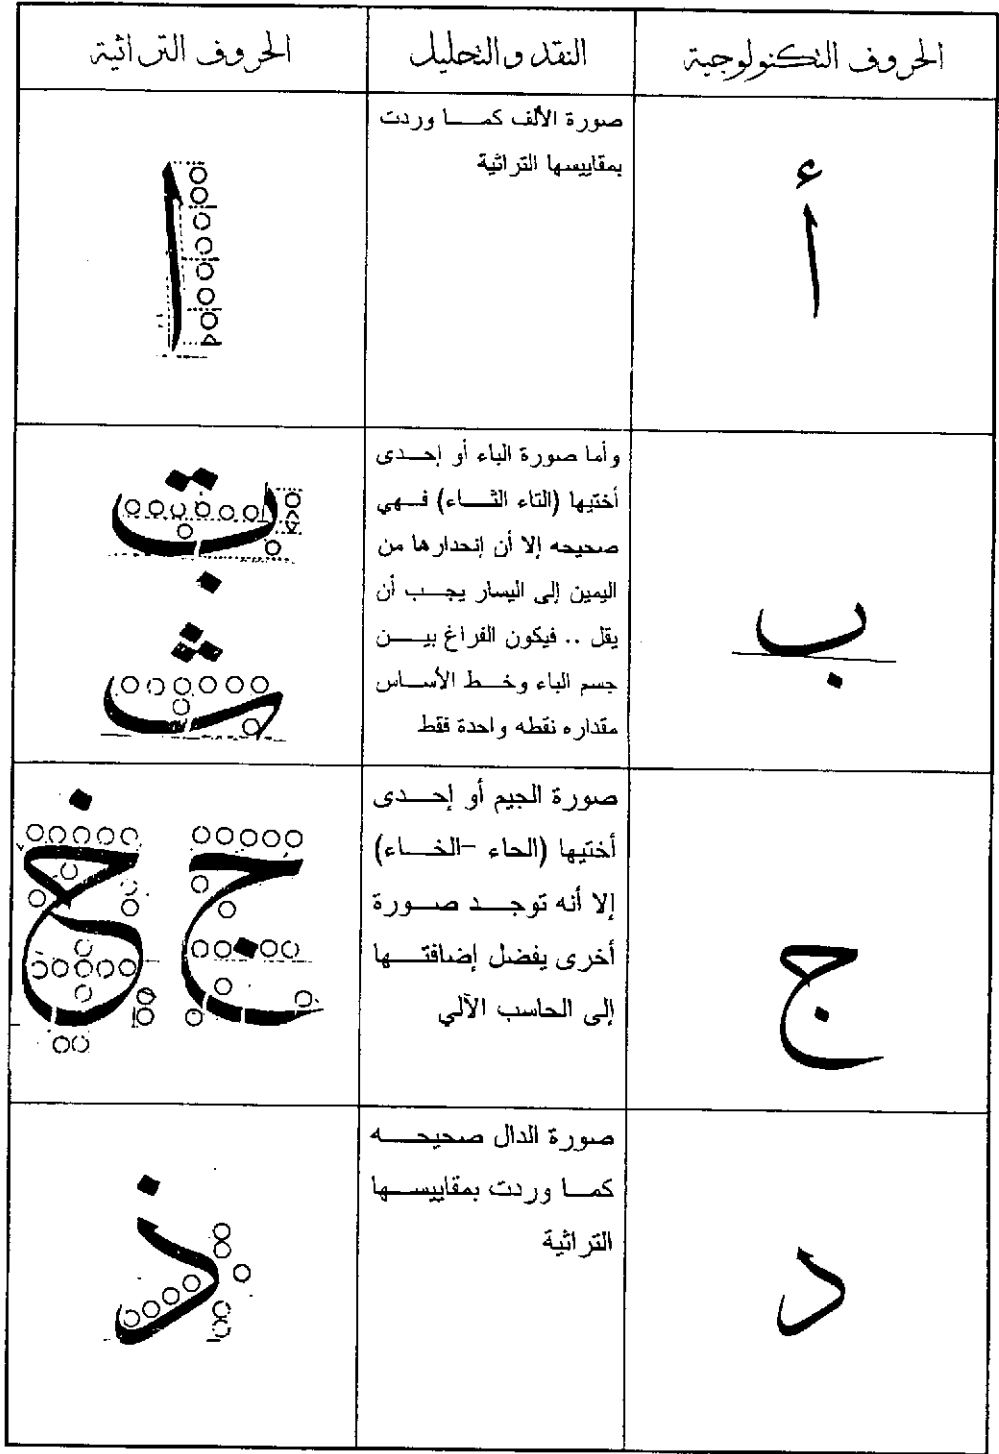 الحروف التكنولوجية
النقد والتحليل
الحروف التراثية
أ
صورة الألف كما وردت
بمقاييسها التراثية
ا
ب
وأما صورة الباء أو إحدى
أختيها (التاء الثاء) فهي
صحيحه إلا أن إنحدارها من
اليمين إلى اليسار يجب أن
يقل .. فيكون الفراغ بين
جسم الباء وخط الأساس
مقداره نقطه واحدة فقط
ج
صورة الجيم أو إحدى
أختيها (الحاء -الخاء)
إلا أنه توجد صورة
أخرى يفضل إضافتها
إلى الحاسب الآلي
ج
خ
د
صورة الدال صحيحه
كما وردت بمقاييسها
التراثية
ذ